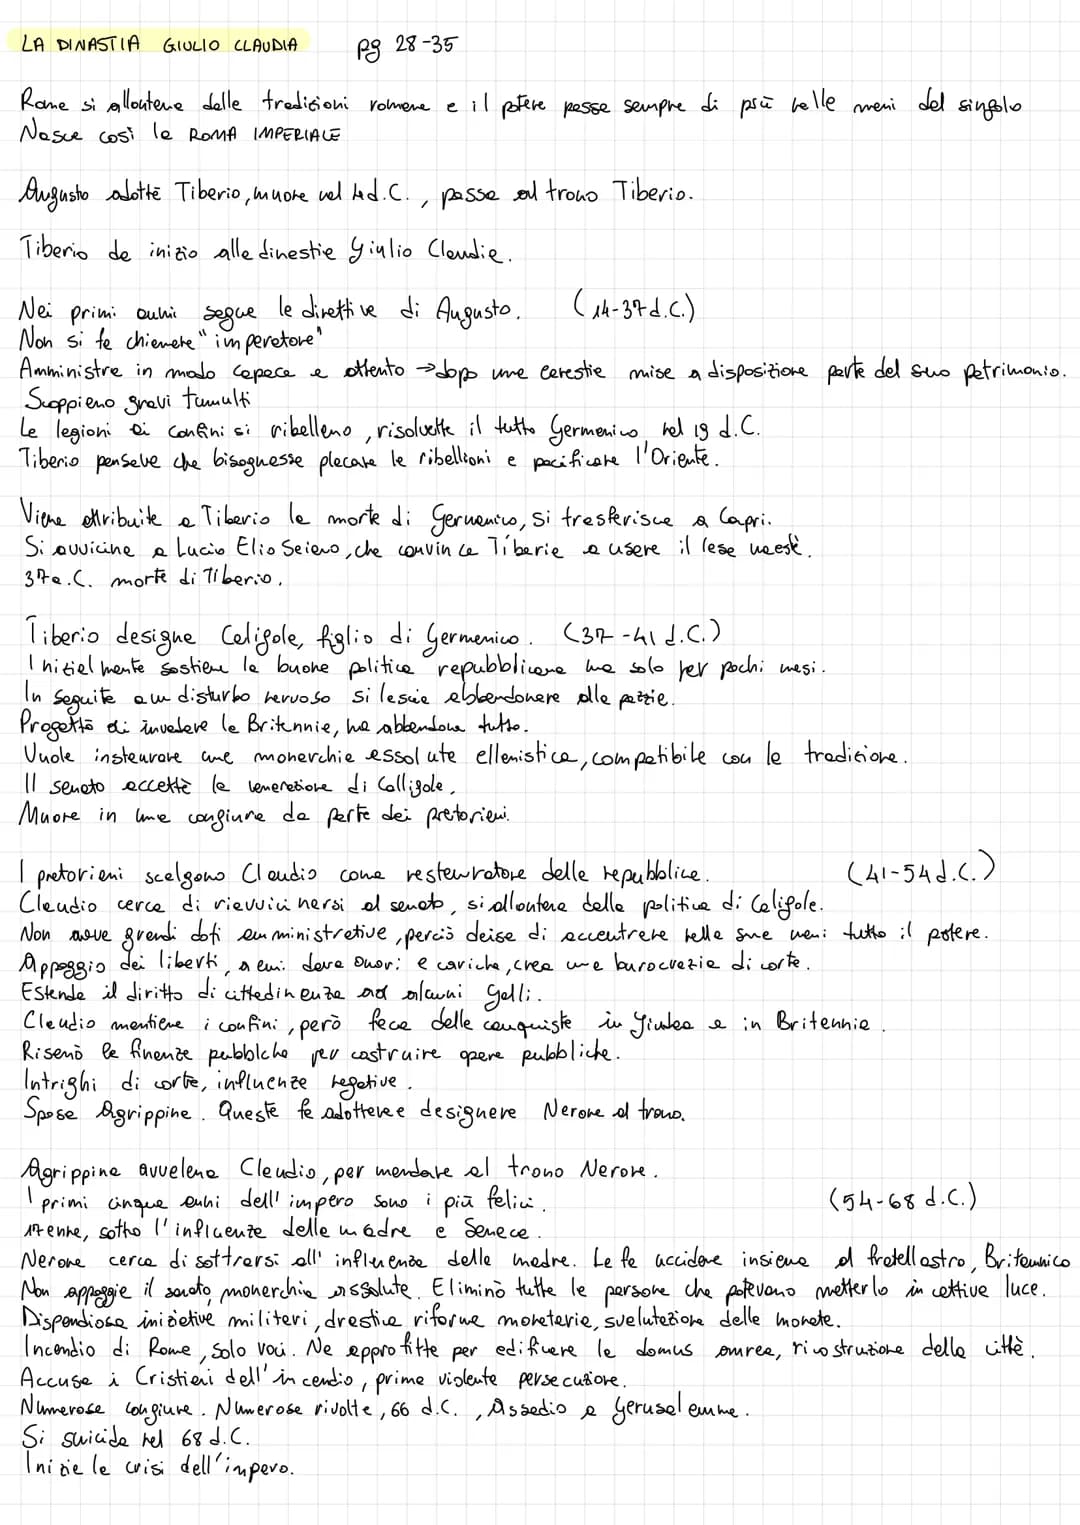 LA DINASTIA GIULIO CLAUDIA pg 28-35
Roma si allontana dalle tradizioni romane e il potere passa sempre di più nelle mani del singolo
Nasce così la ROMA IMPERIALE
Augusto adotta Tiberio, muore nel 14 d.C., passa al trono Tiberio.
Tiberio da inizio alla dinastia Giulio Claudia.
Nei primi anni segue le direttive di Augusto. (14-37 d.C.)
Non si fa chiamare "imperatore"
Amministra in modo capace e attento → dopo una carestia mise a disposizione parte del suo patrimonio.
Scoppiano gravi tumulti
Le legioni ai confini si ribellano, risolvette il tutto Germanico nel 19 d.C.
Tiberio pensava che bisognasse placare le ribellioni e pacificare l'Oriente.
Viene attribuita a Tiberio la morte di Germanico, si trasferisce a Capri.
Si avvicina a Lucio Elio Seiano, che convince Tiberio a usare il lesa maestà.
37 a.C. morte di Tiberio.
Tiberio designa Caligola, figlio di Germanico. (37-41 d.C.)
Inizialmente sostiene la buona politica repubblicana ma solo per pochi mesi.
In seguito a un disturbo nervoso si lascia abbandonare alla pazzia.
Progettò di invadere la Britannia, ma abbandona tutto.
Vuole instaurare una monarchia assoluta ellenistica, compatibile con la tradizione.
Il senato accetta la venerazione di Calligola.
Muore in una congiura da parte dei pretoriani.
I pretoriani scelgono Claudio come restauratore della repubblica. (41-54 d.C.)
Claudio cerca di riavvicinarsi al senato, si allontana dalla politica di Caligola.
Non aveva grandi doti amministrative, perciò decise di accentrare nelle sue mani tutto il potere.
Appoggio dei liberti, a cui dava onori e cariche, crea una burocrazia di corte.
Estende il diritto di cittadinanza ad alcuni Galli.
Claudio mantiene i confini, però fece delle conquiste in Giudea e in Britannia.
Risanò le finanze pubbliche per costruire opere pubbliche.
Intrighi di corte, influenze negative.
Sposa Agrippina. Questa fa adottare e designare Nerone al trono.
Agrippina avvelena Claudio, per mandare al trono Nerone.
I primi cinque anni dell'impero sono i più felici. (54-68 d.C.)
17enne, sotto l'influenza della madre e Seneca.
Nerone cerca di sottrarsi all'influenza della madre. La fa uccidere insieme al fratellastro, Britannico
Non appoggia il senato, monarchia assoluta. Eliminò tutte le persone che potevano metterlo in cattiva luce.
Dispendiose iniziative militari, drastica riforma monetaria, svalutazione della moneta.
Incendio di Roma, solo voci. Ne approfitta per edificare la domus aurea, ricostruzione della città.
Accusa i Cristiani dell'incendio, prima violenta persecuzione.
Numerose congiure. Numerose rivolte, 66 d.C., Assedio a Gerusalemme.
Si suicida nel 68 d.C.
Inizia la crisi dell'impero.